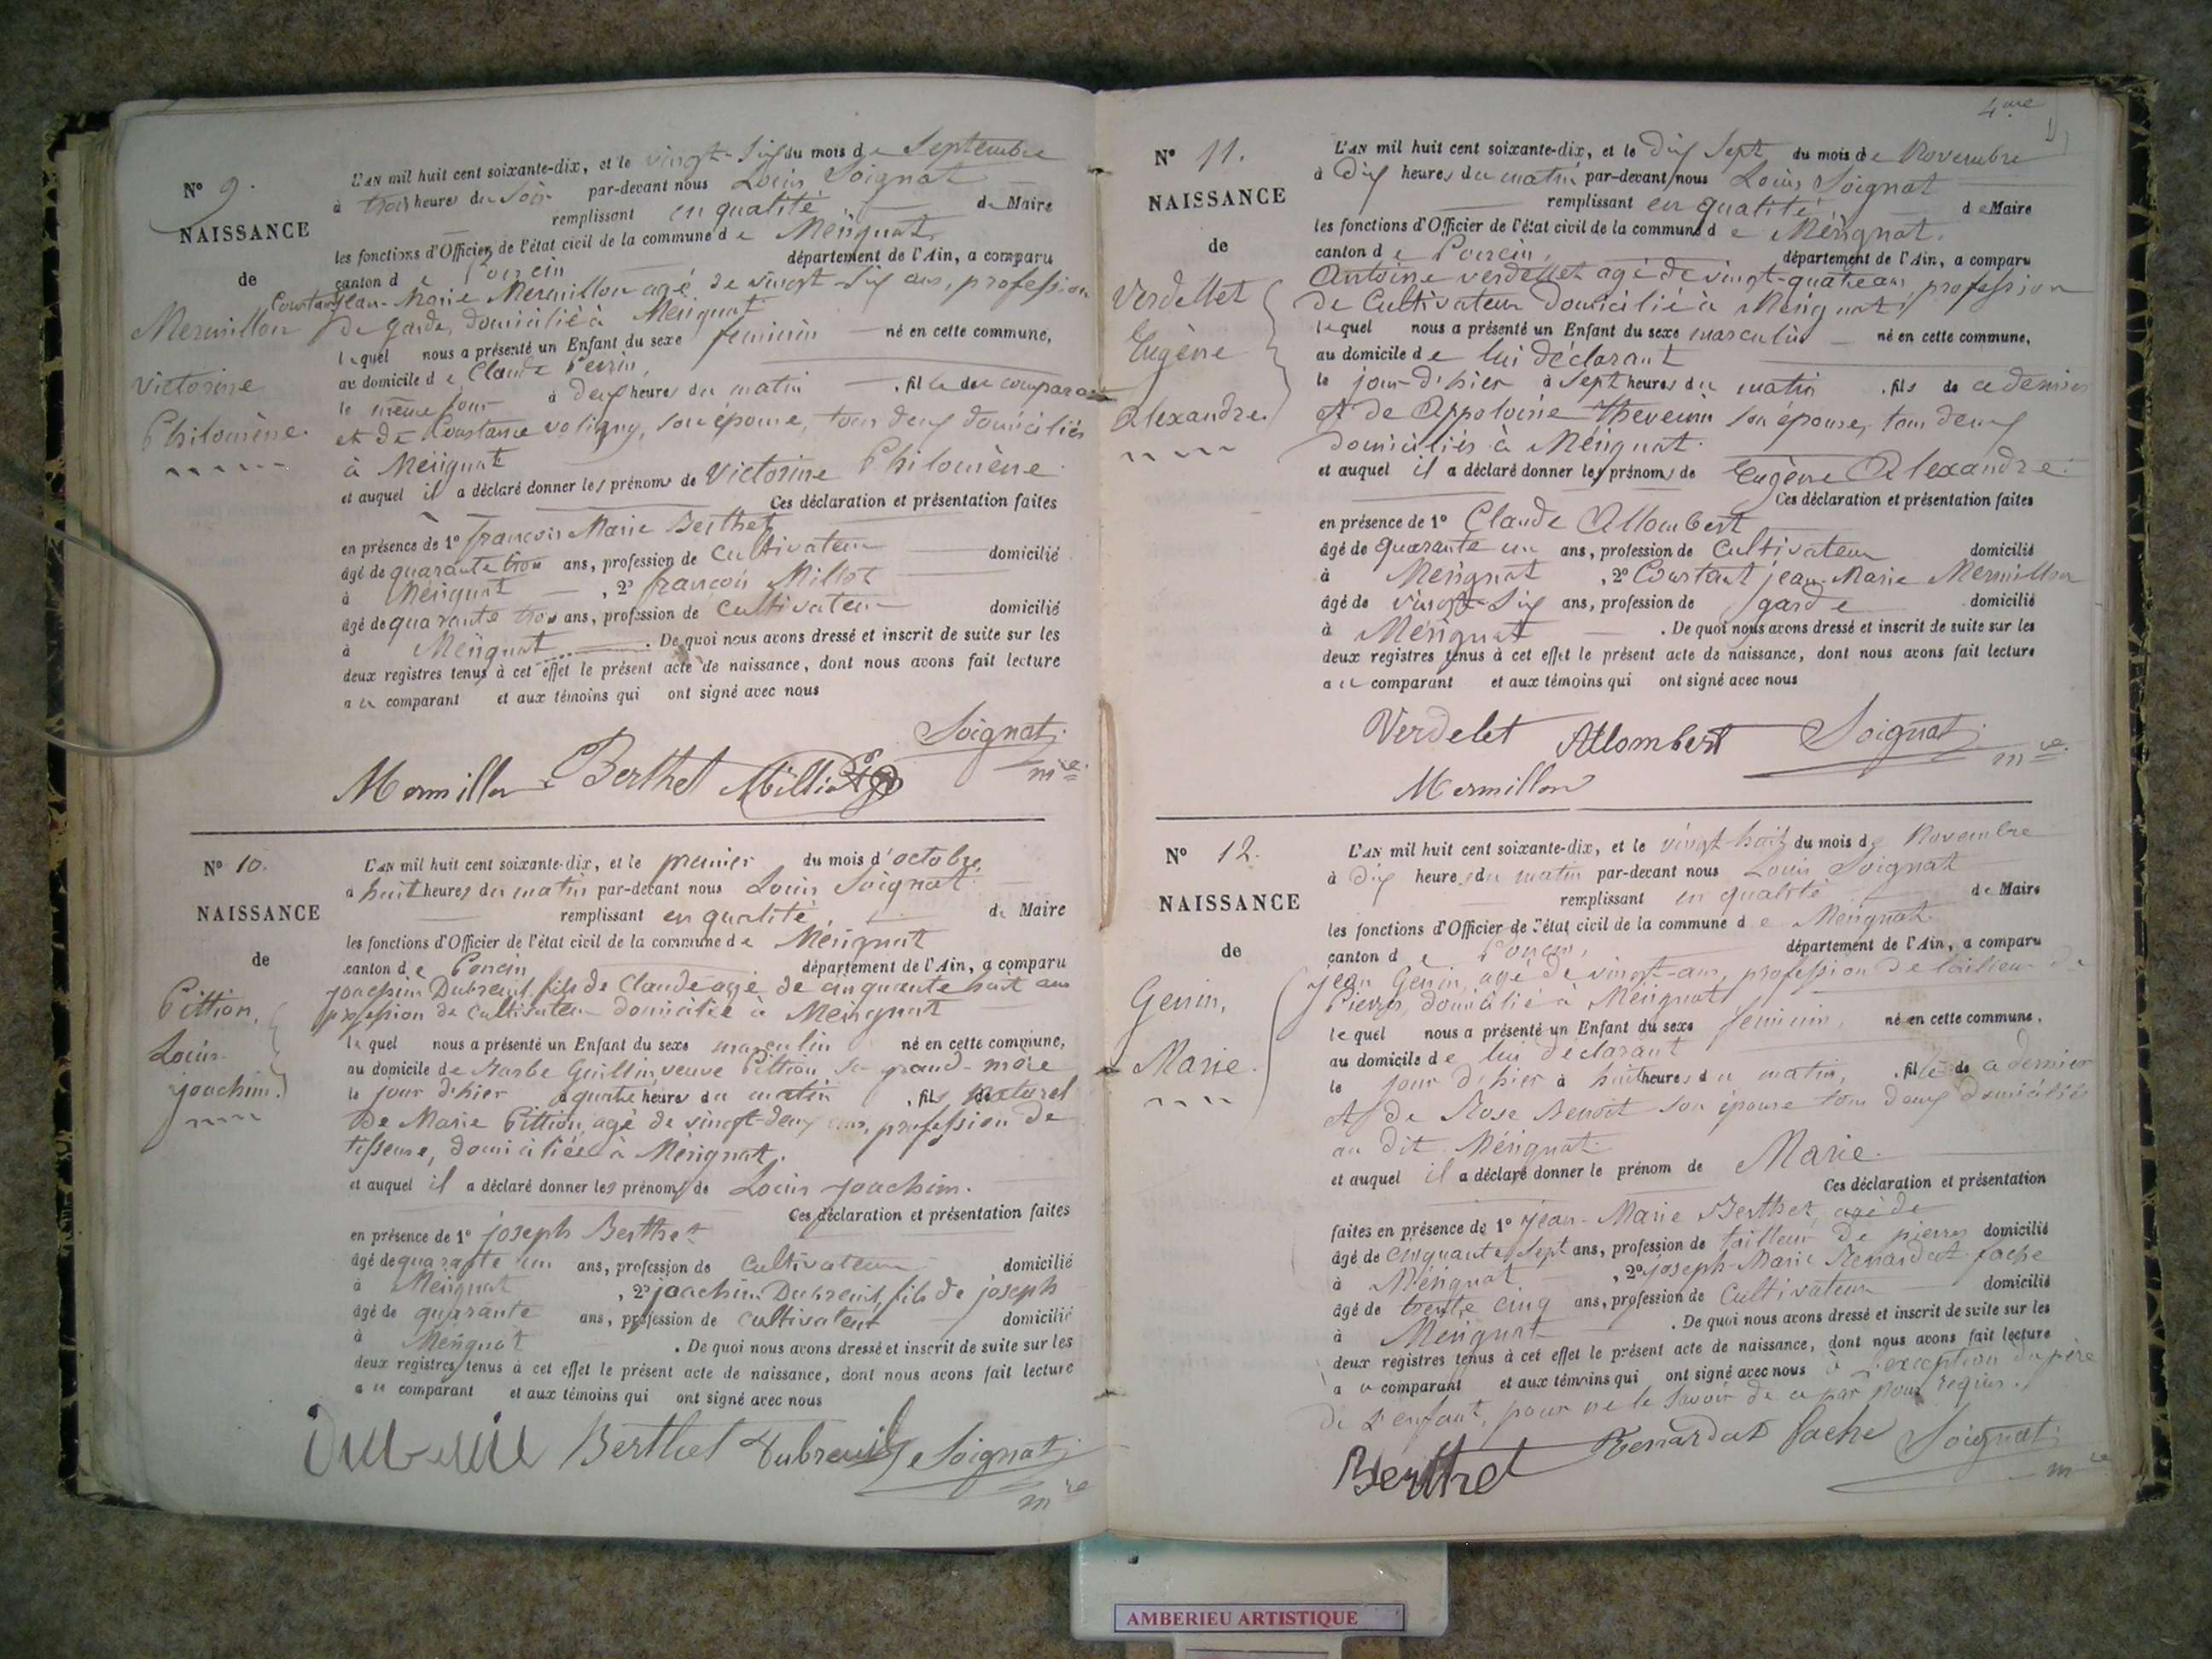 N° 9.
NAISSANCE
de
Mermillon
Victorine
Philomène.
L'AN mil huit cent soixante-dix, et le vingt-six du mois de Septembre
à trois heures du soir par-devant nous Louis Soignat
remplissant en qualité de Maire
les fonctions d'Officier de l'état civil de la commune de Mérignat
canton de Poncin département de l'Ain, a comparu
Constant Jean-Marie Mermillon agé de vingt-six ans, profession
de garde, domicilié à Mérignat
lequel nous a présenté un Enfant du sexe féminin né en cette commune,
au domicile de Claude Perrin,
le même jour à deux heures du matin, fille du comparant
et de Constance voligny, son épouse, tous deux domiciliés
à Mérignat
et auquel il a déclaré donner les prénoms de Victorine Philomène.
Ces déclaration et présentation faites
en présence de 1° françois Marie Berthet
âgé de quarante trois ans, profession de Cultivateur domicilié
à Mérignat, 2° françois Millot
âgé de quarante trois ans, profession de Cultivateur domicilié
à Mérignat. De quoi nous avons dressé et inscrit de suite sur les
deux registres tenus à cet effet le présent acte de naissance, dont nous avons fait lecture
au comparant et aux témoins qui ont signé avec nous
Soignat
mre
Mermillon Berthet
N° 10.
NAISSANCE
de
Pittion,
Louis
joachim.
L'AN mil huit cent soixante-dix, et le premier du mois d'octobre,
à huit heures du matin par-devant nous Louis Soignat
remplissant en qualité, de Maire
les fonctions d'Officier de l'état civil de la commune de Mérignat
canton de Poncin département de l'Ain, a comparu
joachim Dubreuil, fils de Claude agé de cinquante huit ans
profession de Cultivateur domicilié à Mérignat
lequel nous a présenté un Enfant du sexe masculin né en cette commune,
au domicile de Barbe Guillin, veuve Pittion sa grand-mère
le jour d'hier à quatre heures du matin, fils naturel
de Marie Pittion, agé de vingt-deux ans, profession de
tisseuse, domiciliée à Mérignat.
et auquel il a déclaré donner les prénoms de Louis joachim.
Ces déclaration et présentation faites
en présence de 1° joseph Berthet
âgé de quarante un ans, profession de Cultivateur domicilié
à Mérignat, 2° joachim Dubreuil, fils de joseph
âgé de quarante ans, profession de Cultivateur domicilié
à Mérignat. De quoi nous avons dressé et inscrit de suite sur les
deux registres tenus à cet effet le présent acte de naissance, dont nous avons fait lecture
au comparant et aux témoins qui ont signé avec nous
Berthet Dubreuil Soignat
mre
4me
N° 11.
NAISSANCE
de
Verdellet
Eugène
Alexandre.
L'AN mil huit cent soixante-dix, et le dix sept du mois de Novembre
à dix heures du matin par-devant nous Louis Soignat
remplissant en qualité de Maire
les fonctions d'Officier de l'état civil de la commune de Mérignat.
canton de Poncin, département de l'Ain, a comparu
Antoine verdellet agé de vingt-quatre ans profession
de Cultivateur domicilié à Mérignat,
lequel nous a présenté un Enfant du sexe masculin né en cette commune,
au domicile de lui déclarant
le jour d'hier à sept heures du matin, fils de ce dernier
et de Appoloine Thevenin son épouse, tous deux
domiciliés à Mérignat.
et auquel il a déclaré donner les prénoms de Eugène Alexandre.
Ces déclaration et présentation faites
en présence de 1° Claude Allombert
âgé de quarante un ans, profession de Cultivateur domicilié
à Mérignat, 2° Constant jean-Marie Mermillon
âgé de vingt-six ans, profession de garde domicilié
à Mérignat. De quoi nous avons dressé et inscrit de suite sur les
deux registres tenus à cet effet le présent acte de naissance, dont nous avons fait lecture
au comparant et aux témoins qui ont signé avec nous
Verdelet Allombert Soignat
mre
Mermillon
N° 12.
NAISSANCE
de
Genin,
Marie.
L'AN mil huit cent soixante-dix, et le vingt-huit du mois de Novembre
à dix heures du matin par-devant nous Louis Soignat
remplissant en qualité de Maire
les fonctions d'Officier de l'état civil de la commune de Mérignat
canton de Poncin, département de l'Ain, a comparu
jean Genin, agé de vingt-ans, profession de tailleur de
Pierres, domicilié à Mérignat
lequel nous a présenté un Enfant du sexe féminin, né en cette commune,
au domicile de lui déclarant
le jour d'hier à huit heures du matin, fille de ce dernier
et de Rose Benoit son épouse tous deux domiciliés
au dit Mérignat.
et auquel il a déclaré donner le prénom de Marie.
Ces déclaration et présentation
faites en présence de 1° jean-Marie Berthet, agé de
âgé de cinquante sept ans, profession de tailleur de pierres domicilié
à Mérignat, 2° joseph-Marie Renardat fache
âgé de trente cinq ans, profession de Cultivateur domicilié
à Mérignat. De quoi nous avons dressé et inscrit de suite sur les
deux registres tenus à cet effet le présent acte de naissance, dont nous avons fait lecture
au comparant et aux témoins qui ont signé avec nous à l'exception du père
de l'enfant, pour ne le savoir de ce par nous requis.
Berthet Renardat fache Soignat
mre
AMBERIEU ARTISTIQUE